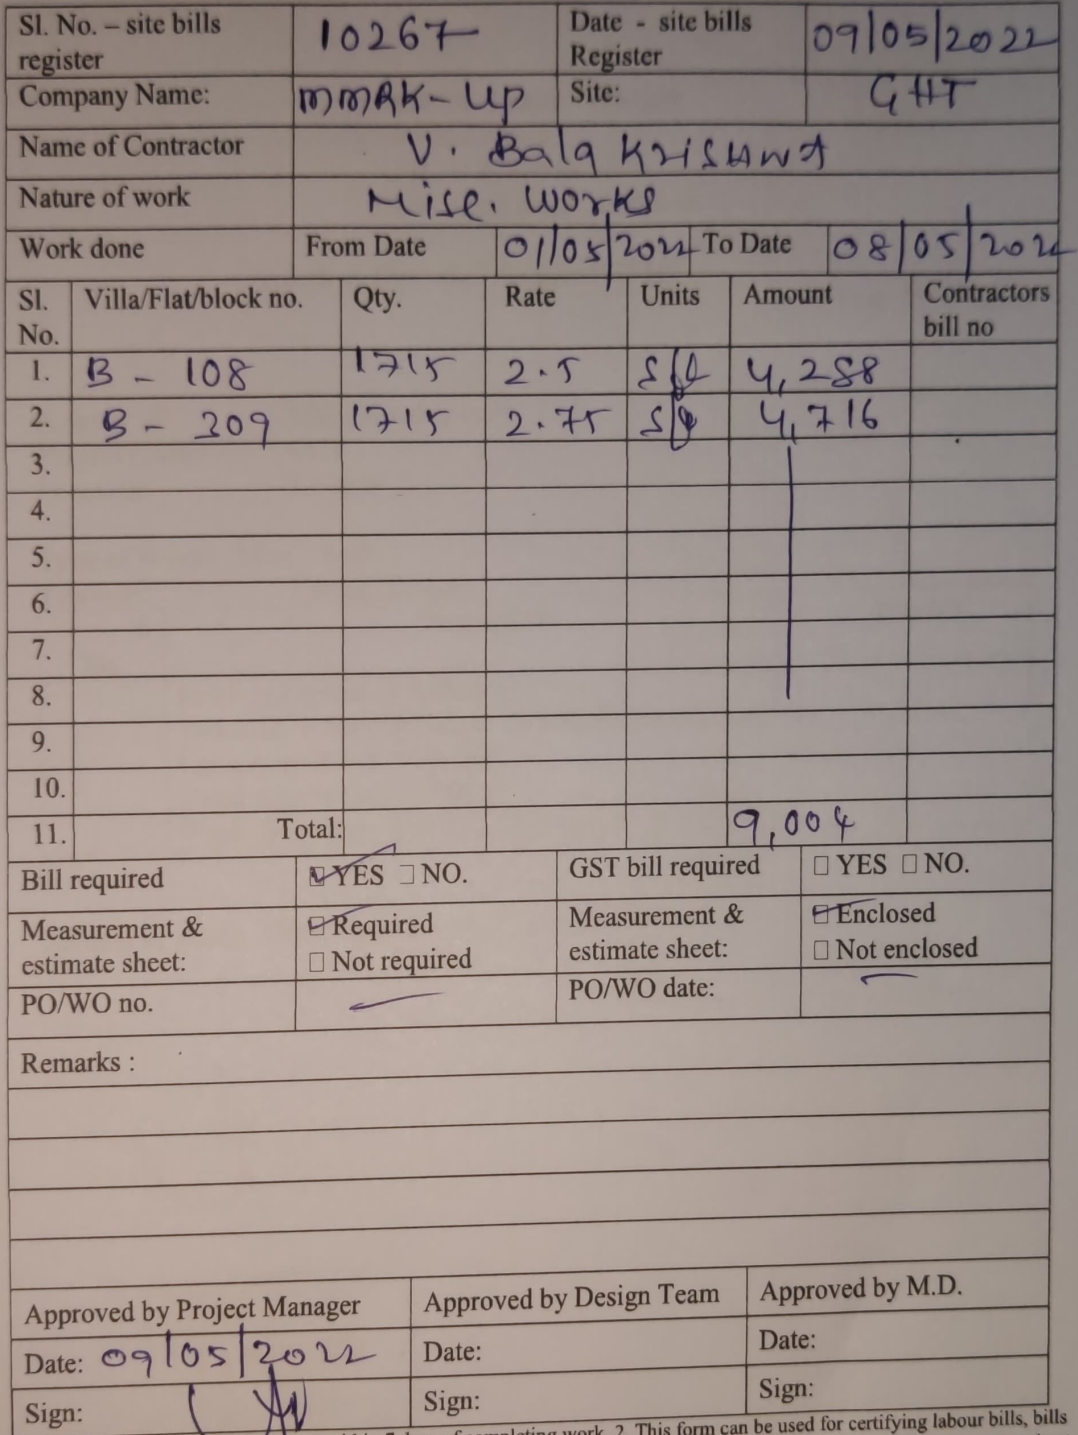 Sl. No. – site bills register 10267 Date - site bills Register 09/05/2022
Company Name: MMRK-UP Site: GHT
Name of Contractor V. Bala Krishna
Nature of work Misc. Works
Work done From Date 01/05/2022 To Date 08/05/2022
Sl. No. Villa/Flat/block no. Qty. Rate Units Amount Contractors bill no
1. B - 108 1715 2.5 sft 4,288
2. B - 309 1715 2.75 sft 4,716
3.
4.
5.
6.
7.
8.
9.
10.
11. Total: 9,004
Bill required YES NO. GST bill required YES NO.
Measurement & estimate sheet: Required Not required Measurement & estimate sheet: Enclosed Not enclosed
PO/WO no. PO/WO date:
Remarks :
Approved by Project Manager Approved by Design Team Approved by M.D.
Date: 09/05/2022 Date: Date:
Sign: Sign: Sign:
work. 2. This form can be used for certifying labour bills, bills